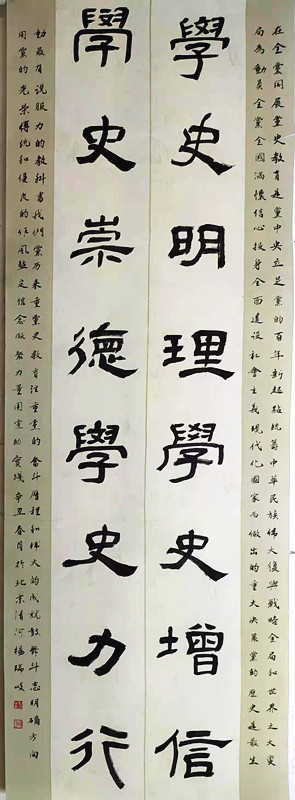 在全黨開展黨史教育是黨中央立足黨的百年新起點統籌中華民族偉大復興戰略全局和世界之大變
局為動員全黨全國滿懷信心投身全面建設社會主義現代化國家而做出的重大決策黨的歷史是最生
學史明理學史增信
學史崇德學史力行
動最有說服力的教科書我們黨历来重黨史教育注重黨的奮斗歷程和偉大的成就鼓舞斗志明確方向
用黨的光榮傳統和優良的作風堅定信念聚力量用黨的實踐辛丑春月於北京清河楊瑞